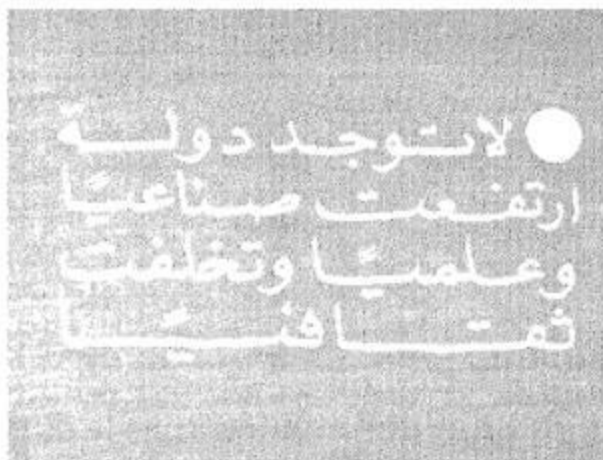 ● لا توجد دولة
ارتفعت صناعيًا
وعلميًا وتخلفت
ثقافيًا